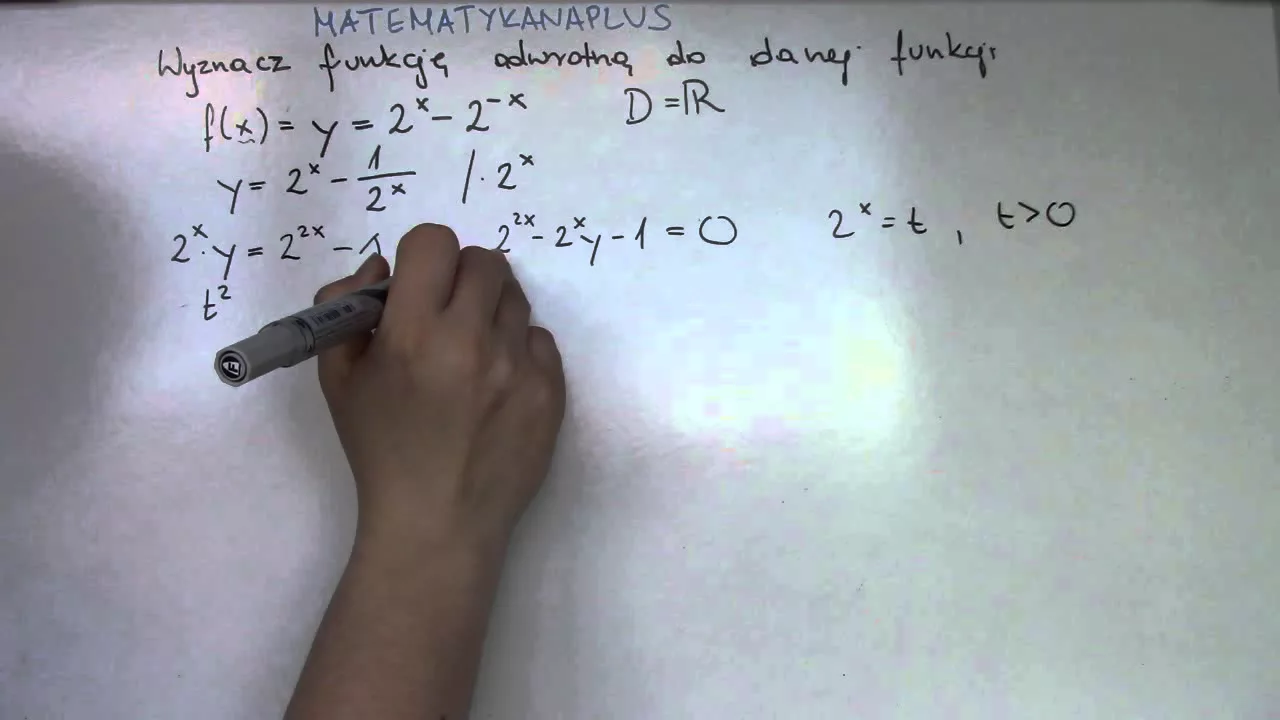 MATEMATYKANAPLUS
Wyznacz funkcję odwrotną do danej funkcji
f(x) = y = 2^x - 2^-x D = ℝ
y = 2^x - 1/2^x / · 2^x
2^x · y = 2^2x - 1 2^2x - 2^x y - 1 = 0 2^x = t , t > 0
t^2